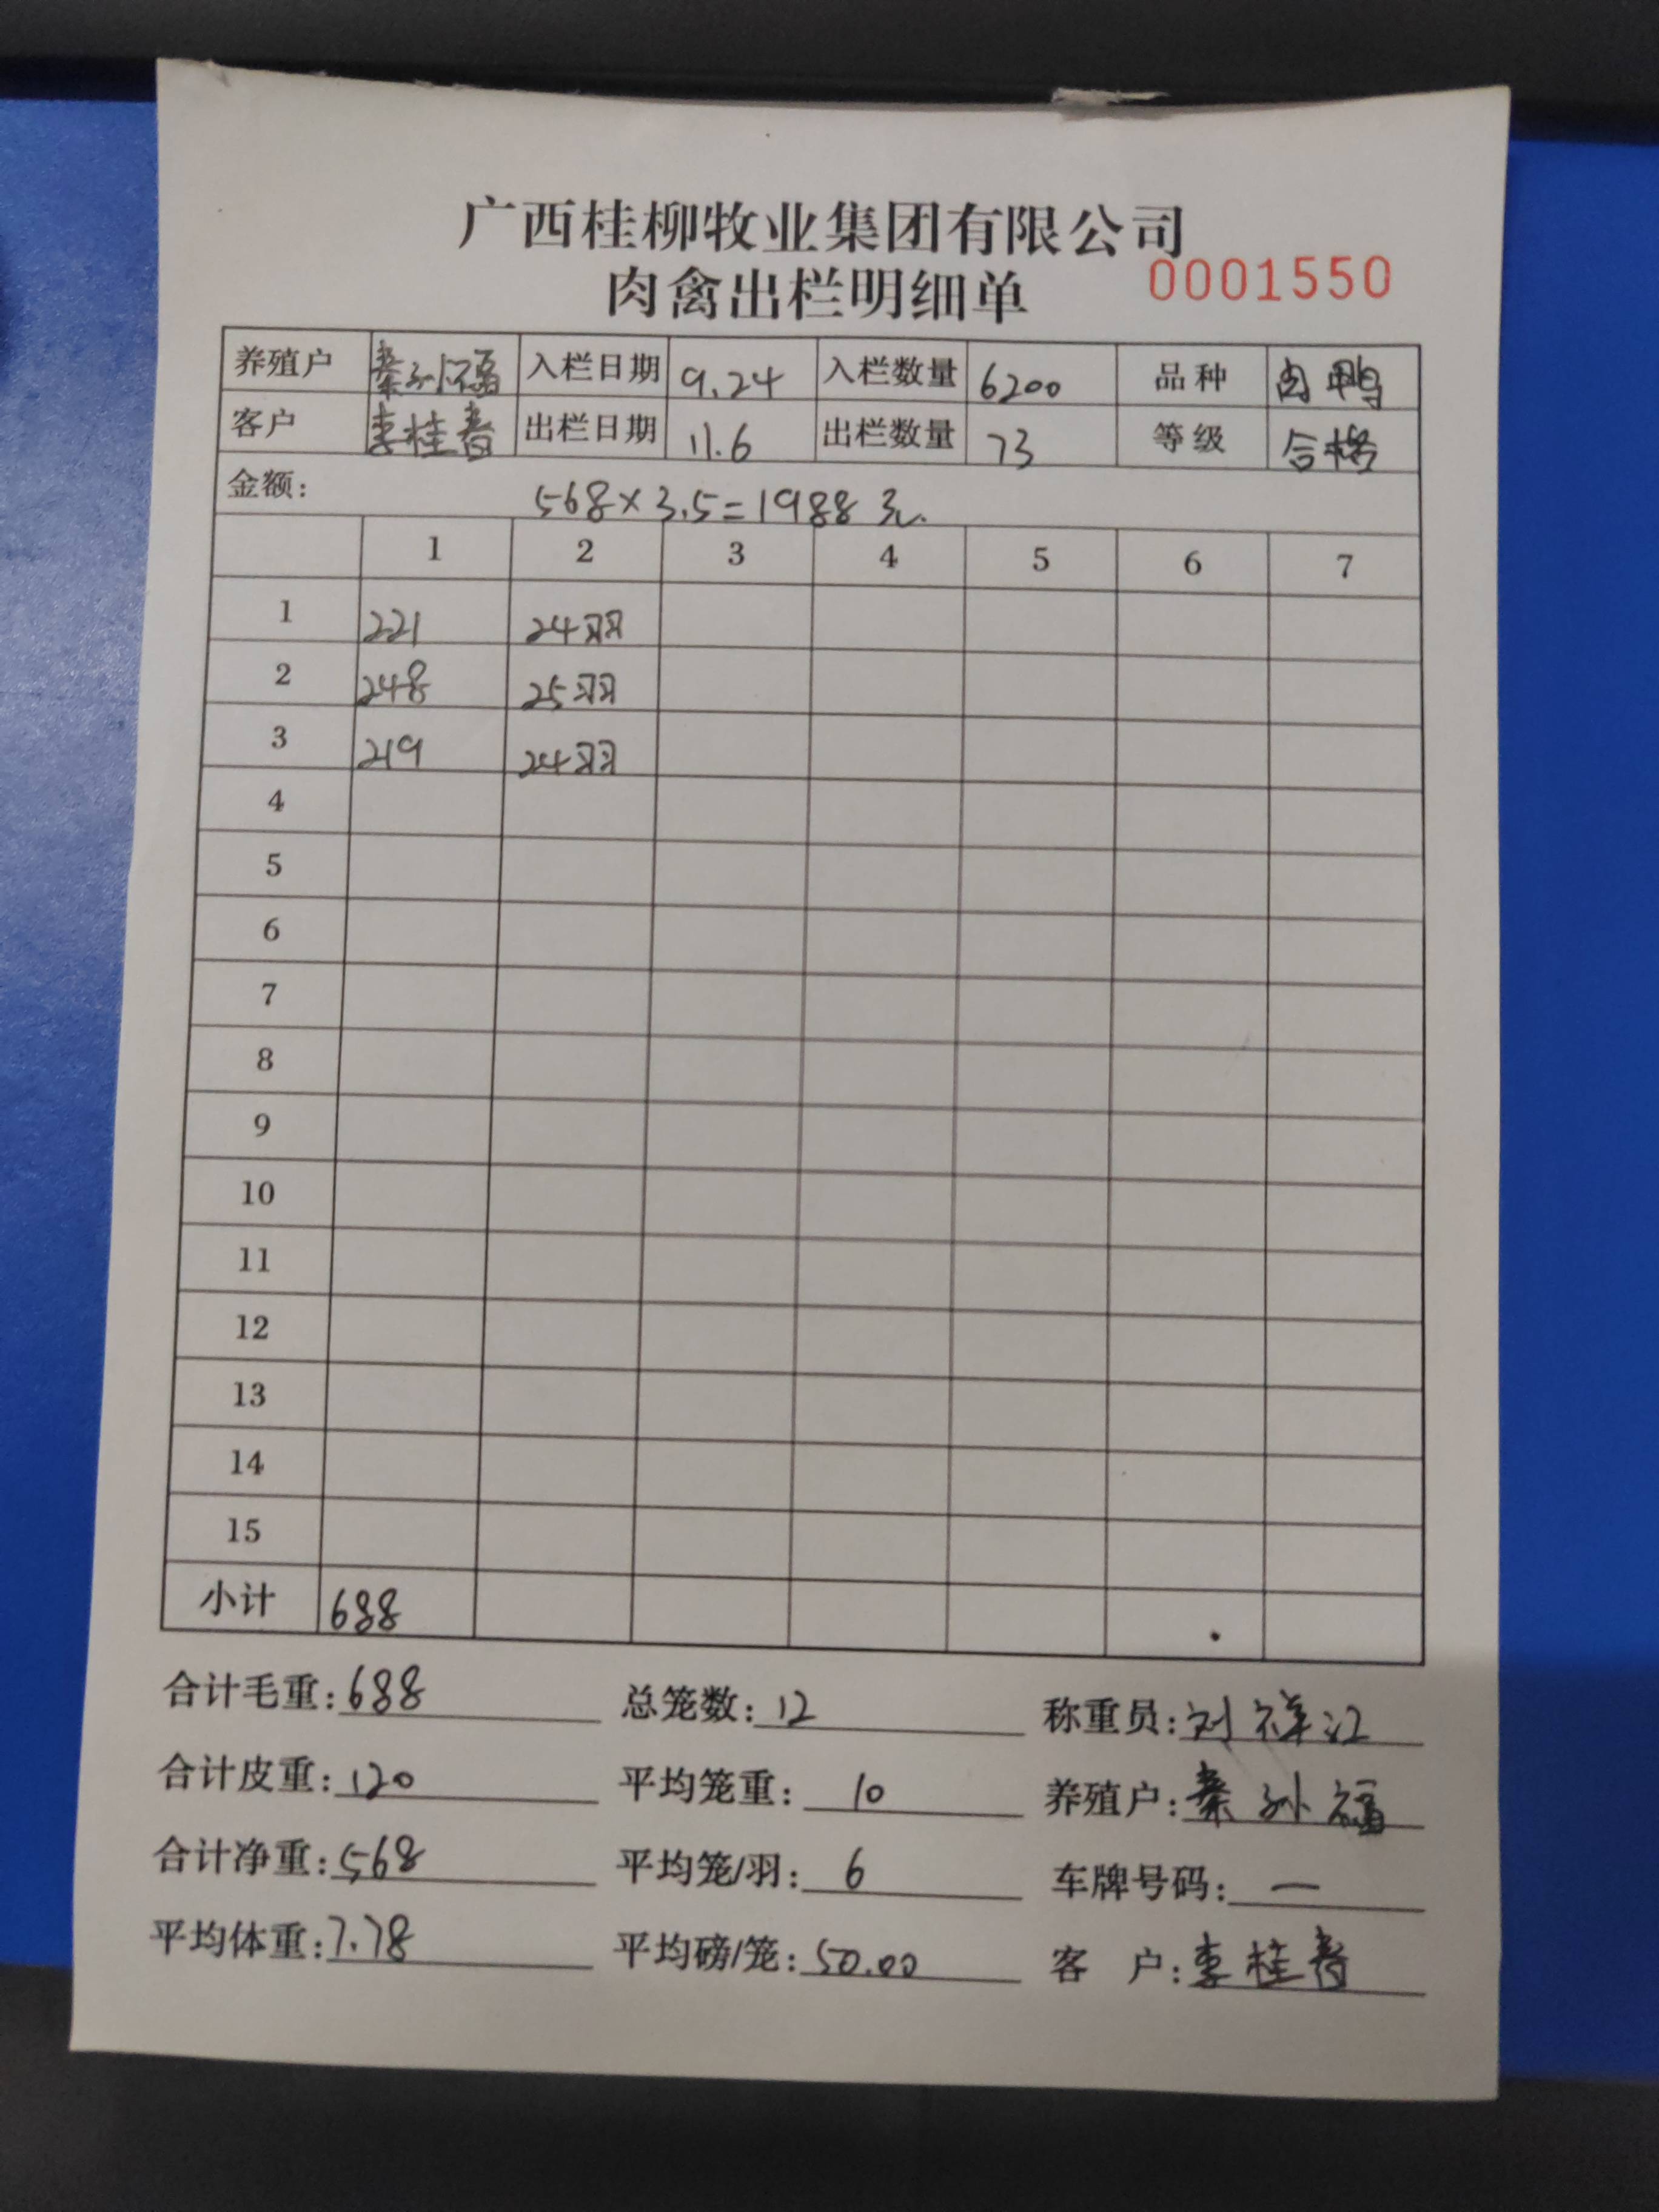 广西桂柳牧业集团有限公司
肉禽出栏明细单 0001550
养殖户 秦孙福 入栏日期 9.24 入栏数量 6200 品种 肉鸭
客户 李桂春 出栏日期 11.6 出栏数量 73 等级 合格
金额: 568×3.5=1988元.
1 2 3 4 5 6 7
1 221 24羽
2 248 25羽
3 219 24羽
4
5
6
7
8
9
10
11
12
13
14
15
小计 688
合计毛重:688 总笼数:12 称重员:刘祥江
合计皮重:120 平均笼重:10 养殖户:秦孙福
合计净重:568 平均笼/羽:6 车牌号码:一
平均体重:7.78 平均磅/笼:50.00 客 户:李桂春